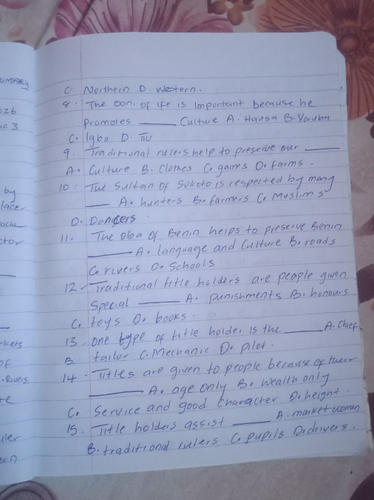 C. Northern D. Western.
8. The Ooni of Ife is important because he
Promotes ____ Culture A. Hausa B. Yoruba
C. Igbo D. Tiv
9. Traditional rulers help to preserve our ____
A. Culture B. Clothes C. games D. farms.
10. The Sultan of Sokoto is respected by many
____ A. hunters B. farmers C. Muslims
D. Dancers
11. The Oba of Benin helps to preserve Benin
____ A. language and Culture B. roads
C. rivers D. Schools
12. Traditional title holders are people given
Special ____ A. punishments B. honours
C. toys D. books.
13. One type of title holder is the ____ A. Chief
B. tailor C. Mechanic D. pilot.
14. Titles are given to people because of their
____ A. age only B. wealth only
C. Service and good Character D. height.
15. Title holders assist ____ A. market woman
B. traditional rulers C. pupils D. drivers.